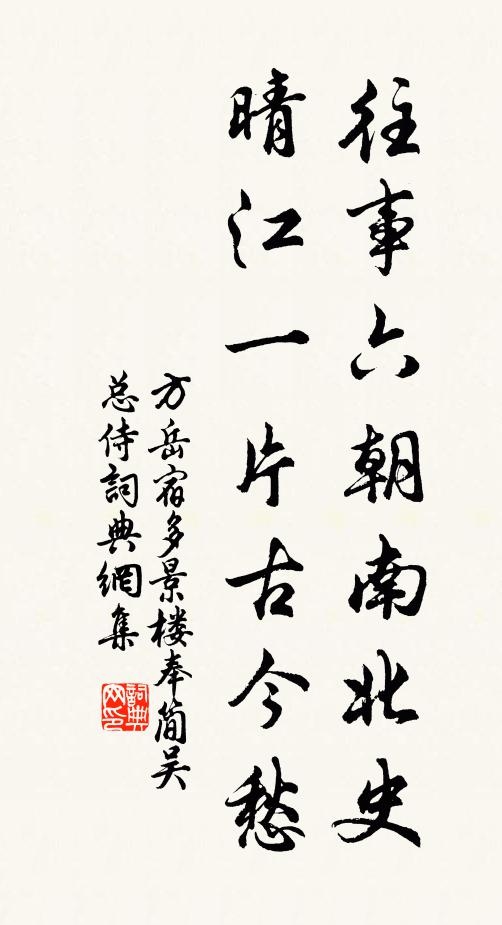 往事六朝南北史
晴江一片古今愁
方岳宿多景楼奉简吴
总侍詞典網集
詞典
网印